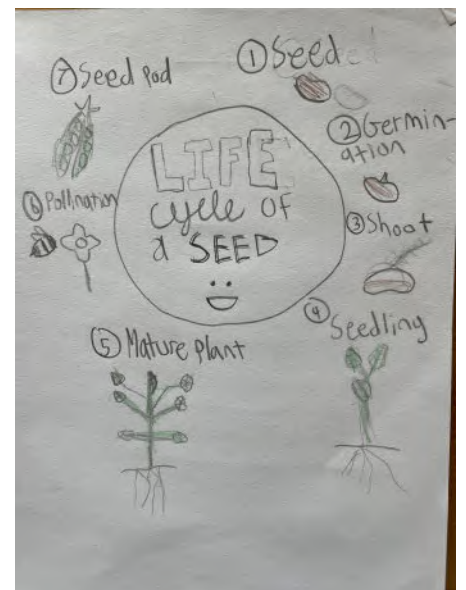 LIFE
cycle of
a SEED
① Seed
② Germin-
ation
③ Shoot
④
Seedling
⑤ Mature plant
⑥ Pollination
⑦ Seed Pod